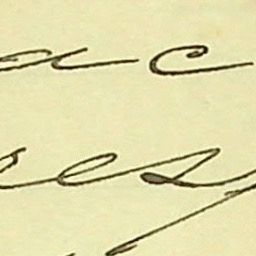 ac
res